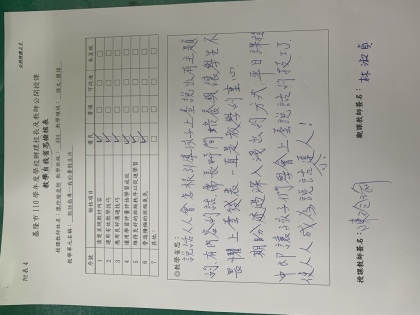 附表4
基隆市110學年度學校辦理校長及教師公開授課
教學自我省思檢核表
授課教師姓名：陳玲瑜老師 教學班級：434 教學領域：語文-國語
教學單元名稱：說話指導-我的暑假生活
序號 檢核項目 優良 普通 可改進 未呈現
1 清楚呈現教材內容 ✓
2 運用有效教學技巧 ✓
3 應用良好溝通技巧 ✓
4 運用學習評量評估學習成效 ✓
5 維持良好的班級秩序以促進學習 ✓
6 營造積極的班級氣氛 ✓
7 其他：
◎教學省思：
說話人人會怎樣引導孩子上臺說出有主題
的、有內容的話，需長時間培養與讓學生不
畏懼上臺發表一直是教學的重心
期盼透過深入淺出的方式，平日課程
中即讓孩子們學會上臺說話的技巧
使人人成為說話達人！
授課教師簽名：陳玲瑜 觀課教師簽名：林淑貞